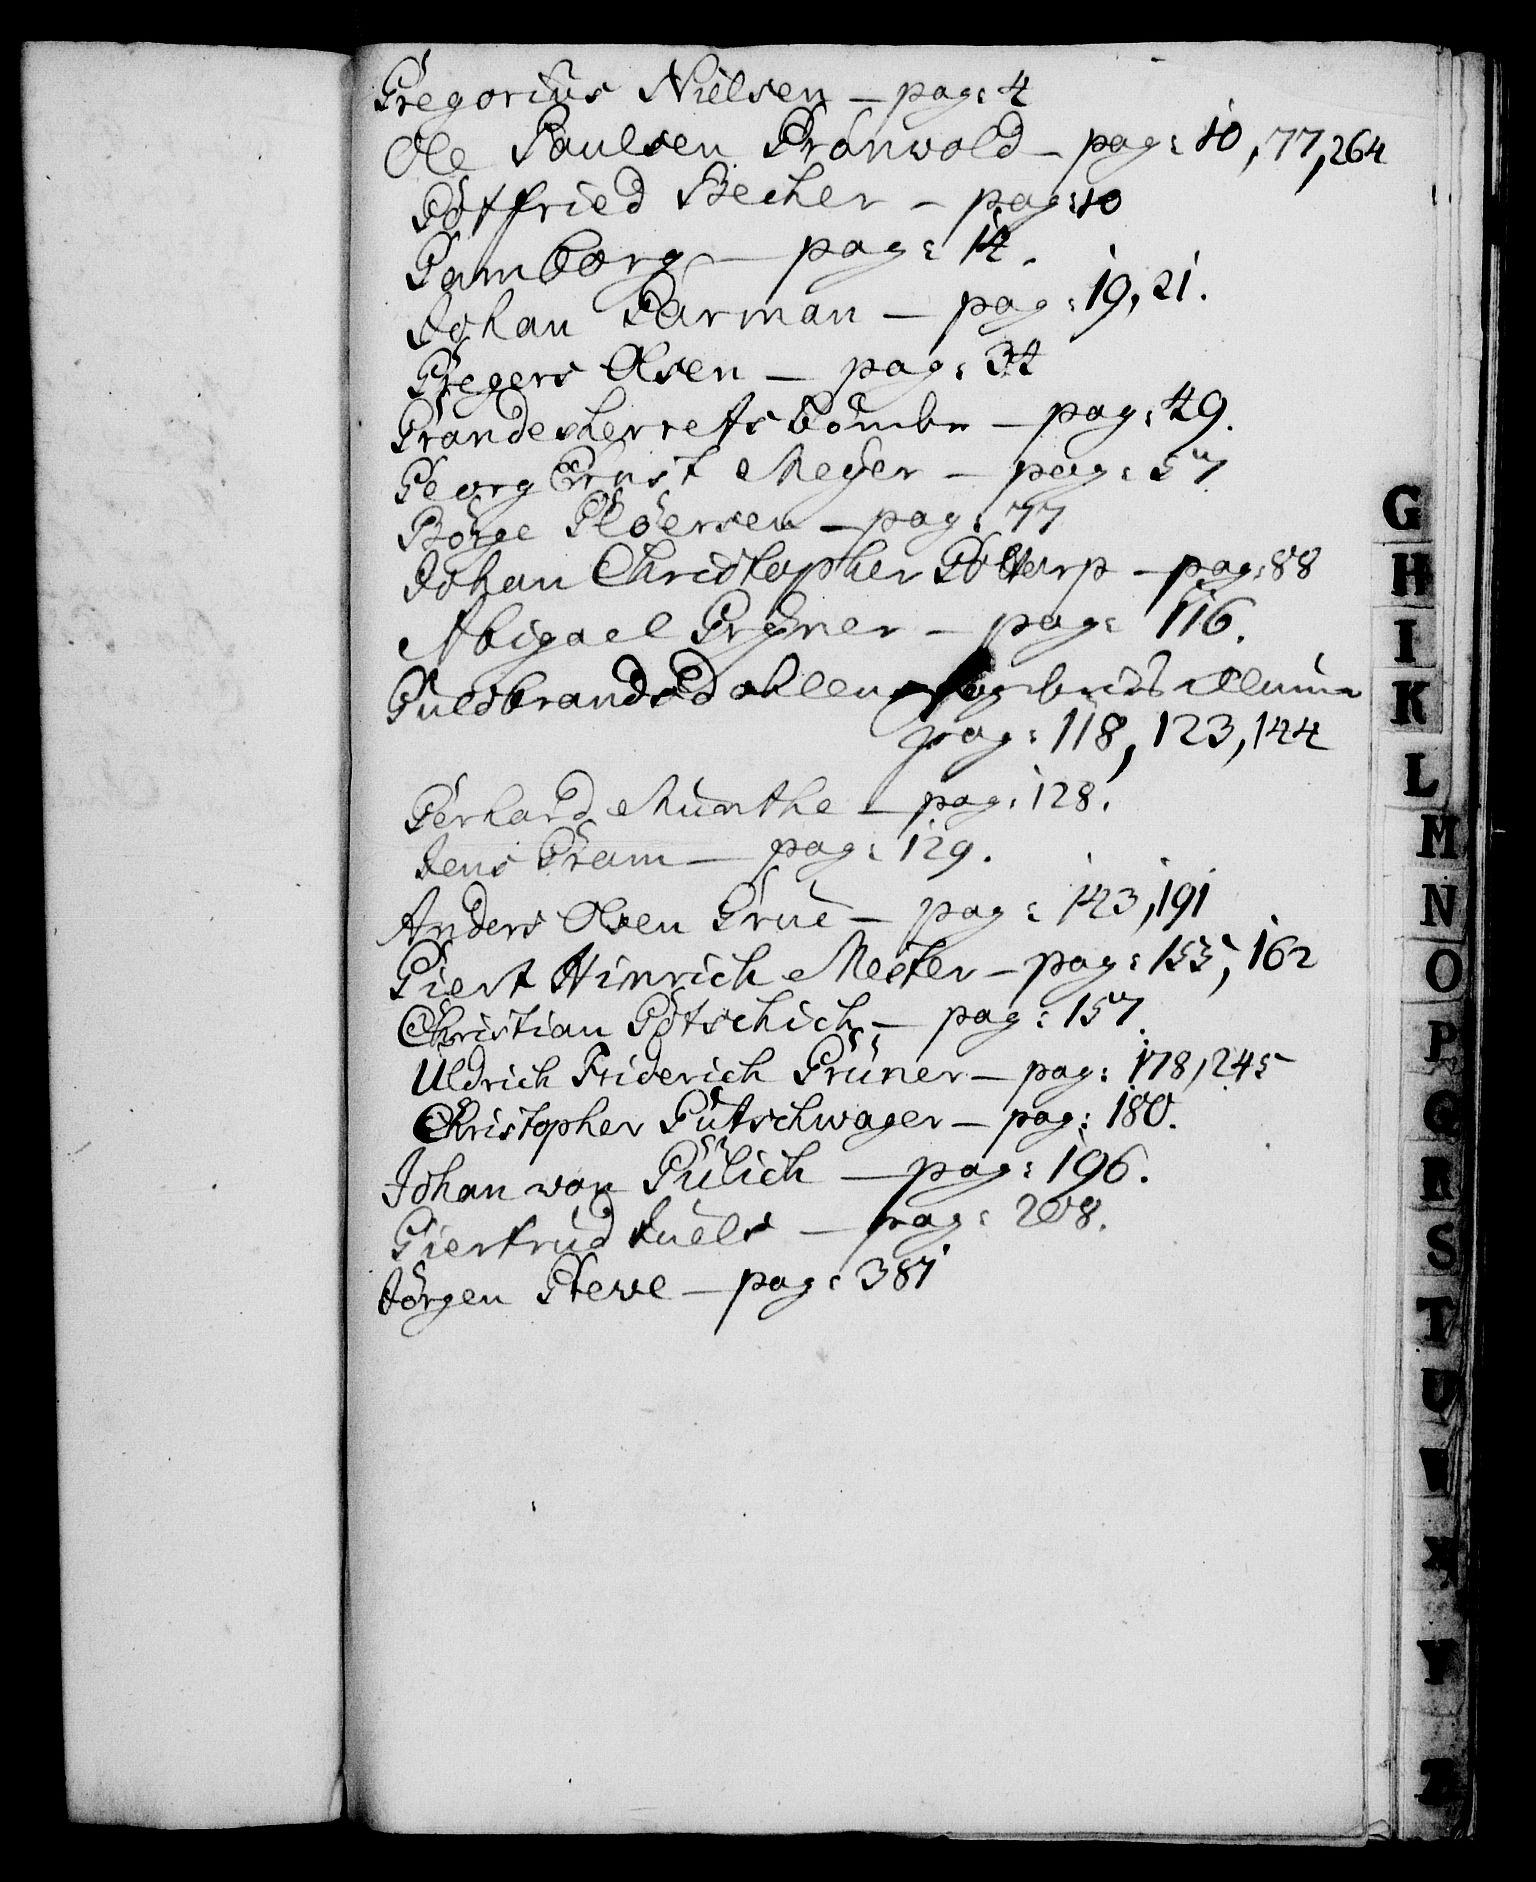 Gregorius Nielsen — pag: 4
Ole Paulsen Grönwold — pag: 10, 77, 264
Gotfried Becher — pag: 10
Gamborg — pag: 14.
Johan Garman — pag: 19, 21.
Gregers Olsen — pag: 34
Grandesherrets — pag: 49.
Georg Ernst Meyer — pag: 57
Börge Gloersen — pag: 77
Johan Christopher — pag: 88
Abigael Gryner — pag: 116.
Guldbrandsdahlen
pag: 118, 123, 144
Gerhard Munthe — pag: 128.
Jens Gram — pag: 129.
Anders Olsen Grue — pag: 143, 191
Giert Hinrich Meiter — pag: 155, 162
Christian Götschich — pag: 157
Uldrich Friderich Grüner — pag: 178, 245
Christopher Gutschwager — pag: 180.
Johan von Gülich — pag: 196.
Giertrud Juels — pag: 208.
Jörgen Greve — pag: 381
G
H
I
K
L
M
N
O
P
Q
R
S
T
U
V
X
Y
Z